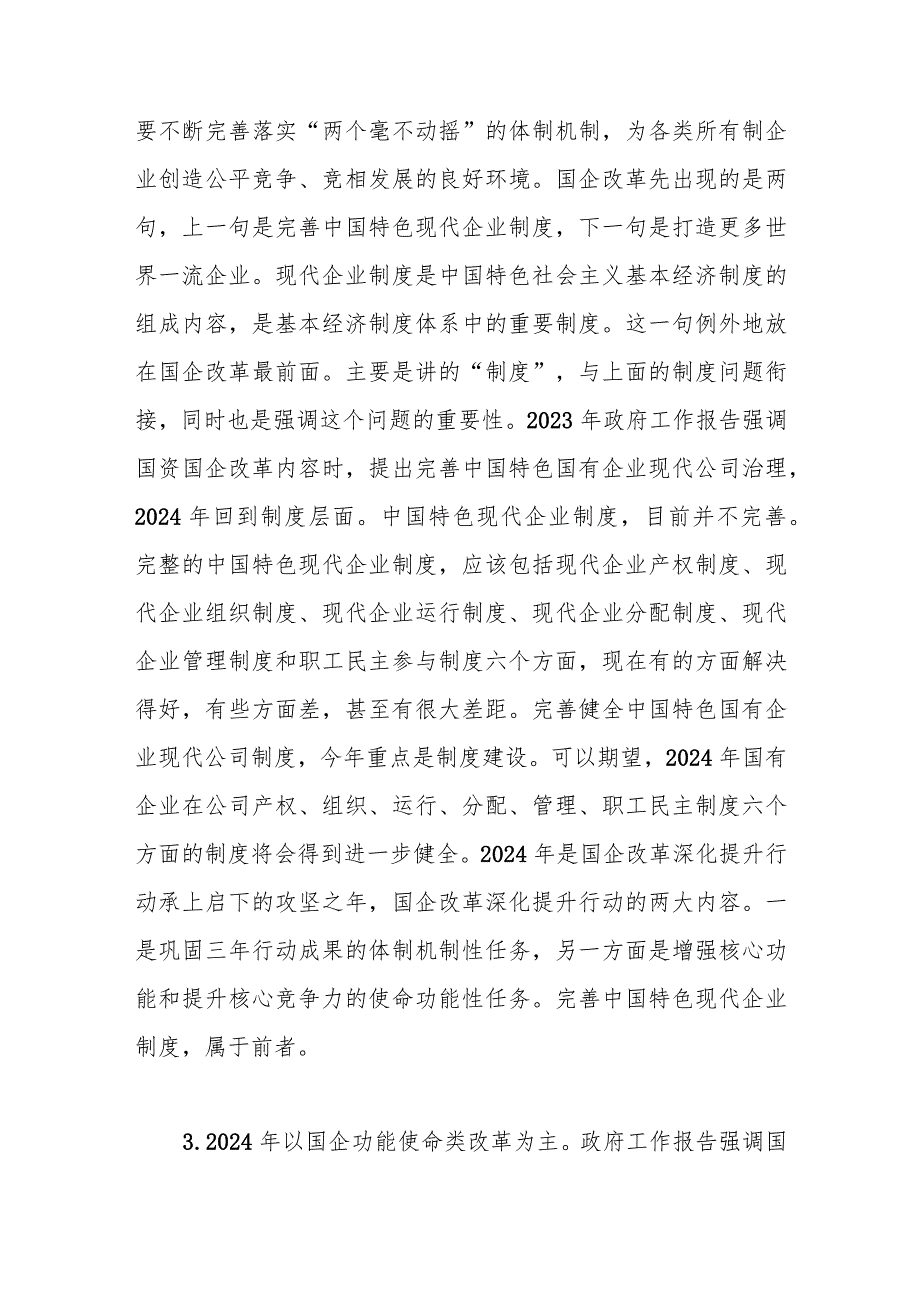 要不断完善落实“两个毫不动摇”的体制机制，为各类所有制企
业创造公平竞争、竞相发展的良好环境。国企改革先出现的是两
句，上一句是完善中国特色现代企业制度，下一句是打造更多世
界一流企业。现代企业制度是中国特色社会主义基本经济制度的
组成内容，是基本经济制度体系中的重要制度。这一句例外地放
在国企改革最前面。主要是讲的“制度”，与上面的制度问题衔
接，同时也是强调这个问题的重要性。2023 年政府工作报告强调
国资国企改革内容时，提出完善中国特色国有企业现代公司治理，
2024 年回到制度层面。中国特色现代企业制度，目前并不完善。
完整的中国特色现代企业制度，应该包括现代企业产权制度、现
代企业组织制度、现代企业运行制度、现代企业分配制度、现代
企业管理制度和职工民主参与制度六个方面，现在有的方面解决
得好，有些方面差，甚至有很大差距。完善健全中国特色国有企
业现代公司制度，今年重点是制度建设。可以期望，2024 年国有
企业在公司产权、组织、运行、分配、管理、职工民主制度六个
方面的制度将会得到进一步健全。2024 年是国企改革深化提升行
动承上启下的攻坚之年，国企改革深化提升行动的两大内容。一
是巩固三年行动成果的体制机制性任务，另一方面是增强核心功
能和提升核心竞争力的使命功能性任务。完善中国特色现代企业
制度，属于前者。
3.2024 年以国企功能使命类改革为主。政府工作报告强调国